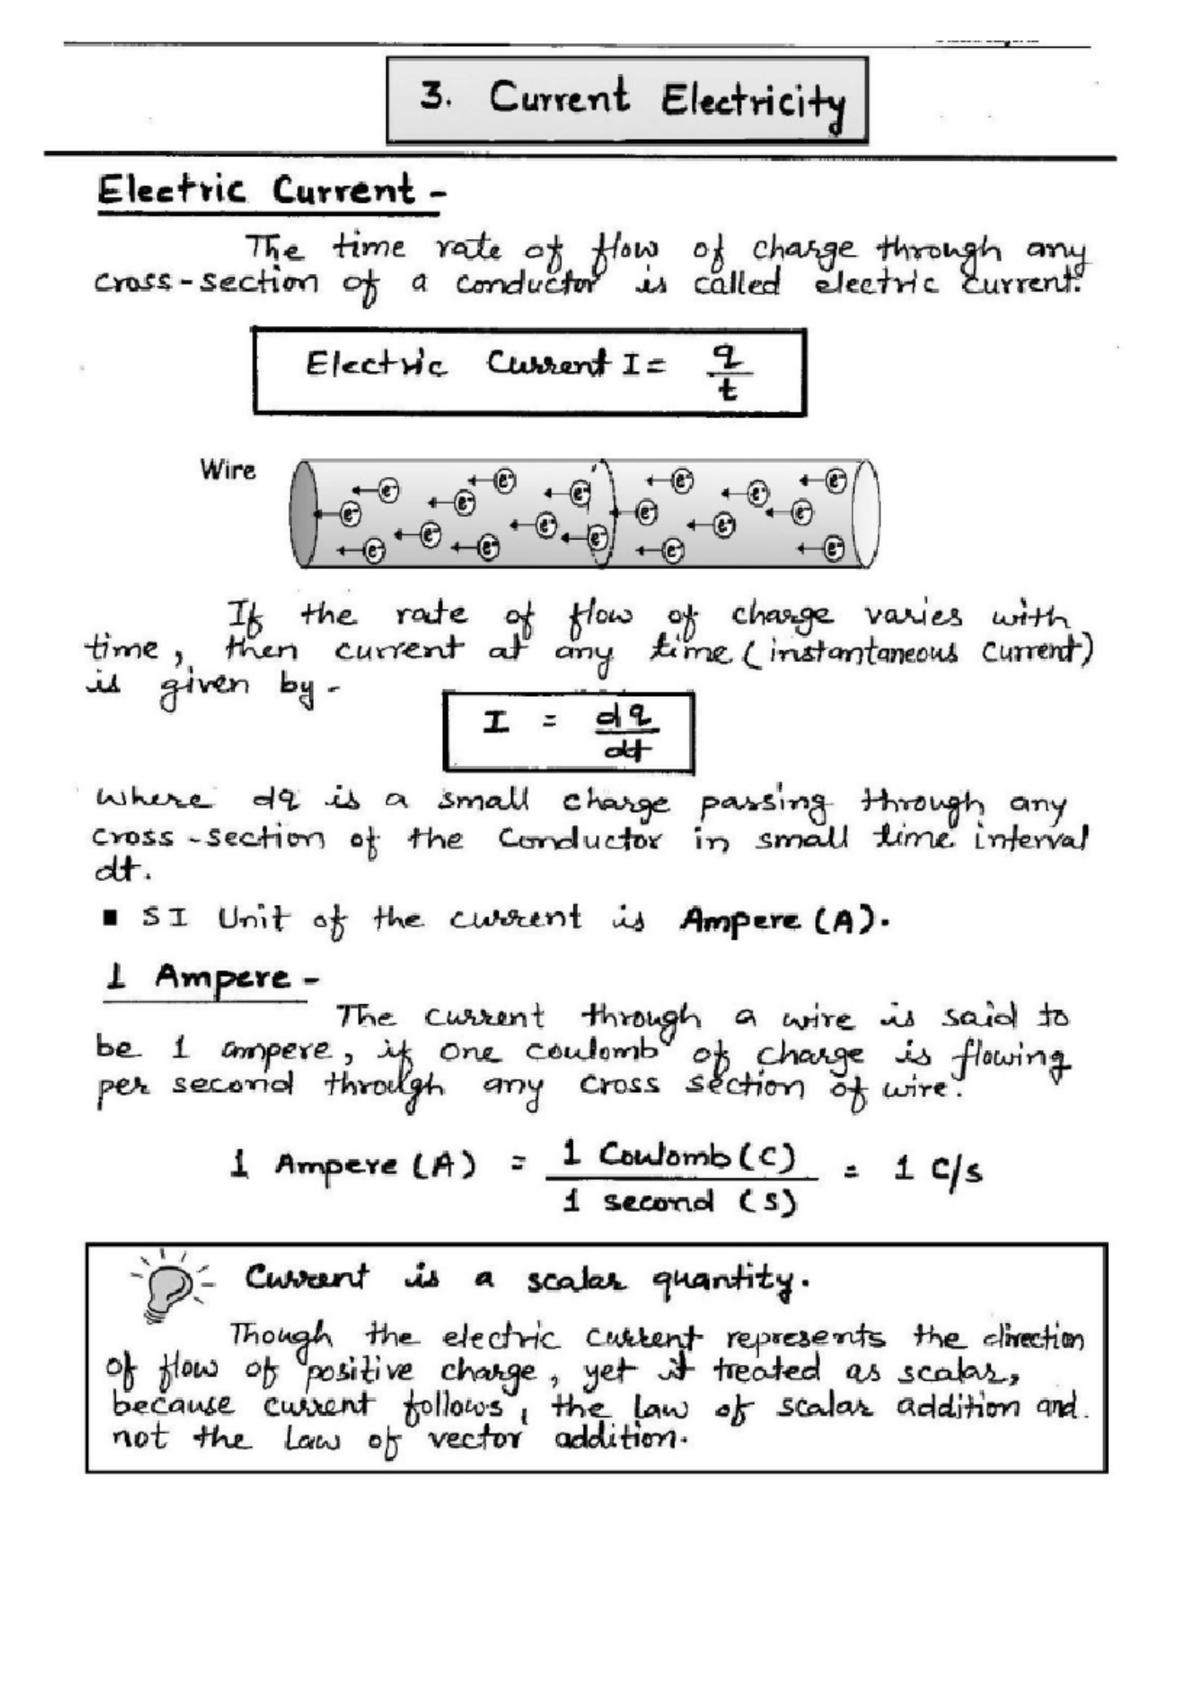 3. Current Electricity
Electric Current -
The time rate of flow of charge through any
cross-section of a conductor is called electric current.
Electric Current I = q/t
Wire
e⁻ e⁻ e⁻ e⁻ e⁻ e⁻ e⁻ e⁻ e⁻ e⁻ e⁻ e⁻ e⁻ e⁻ e⁻ e⁻ e⁻ e⁻ e⁻
If the rate of flow of charge varies with
time, then current at any time (instantaneous current)
is given by -
I = dq/dt
where dq is a small charge passing through any
cross-section of the conductor in small time interval
dt.
■ SI Unit of the current is Ampere (A).
1 Ampere -
The current through a wire is said to
be 1 ampere, if one coulomb of charge is flowing
per second through any cross section of wire.
1 Ampere (A) = 1 Coulomb (C) / 1 second (s) = 1 C/s
Current is a scalar quantity.
Though the electric current represents the direction
of flow of positive charge, yet it treated as scalar,
because current follows, the law of scalar addition and
not the law of vector addition.